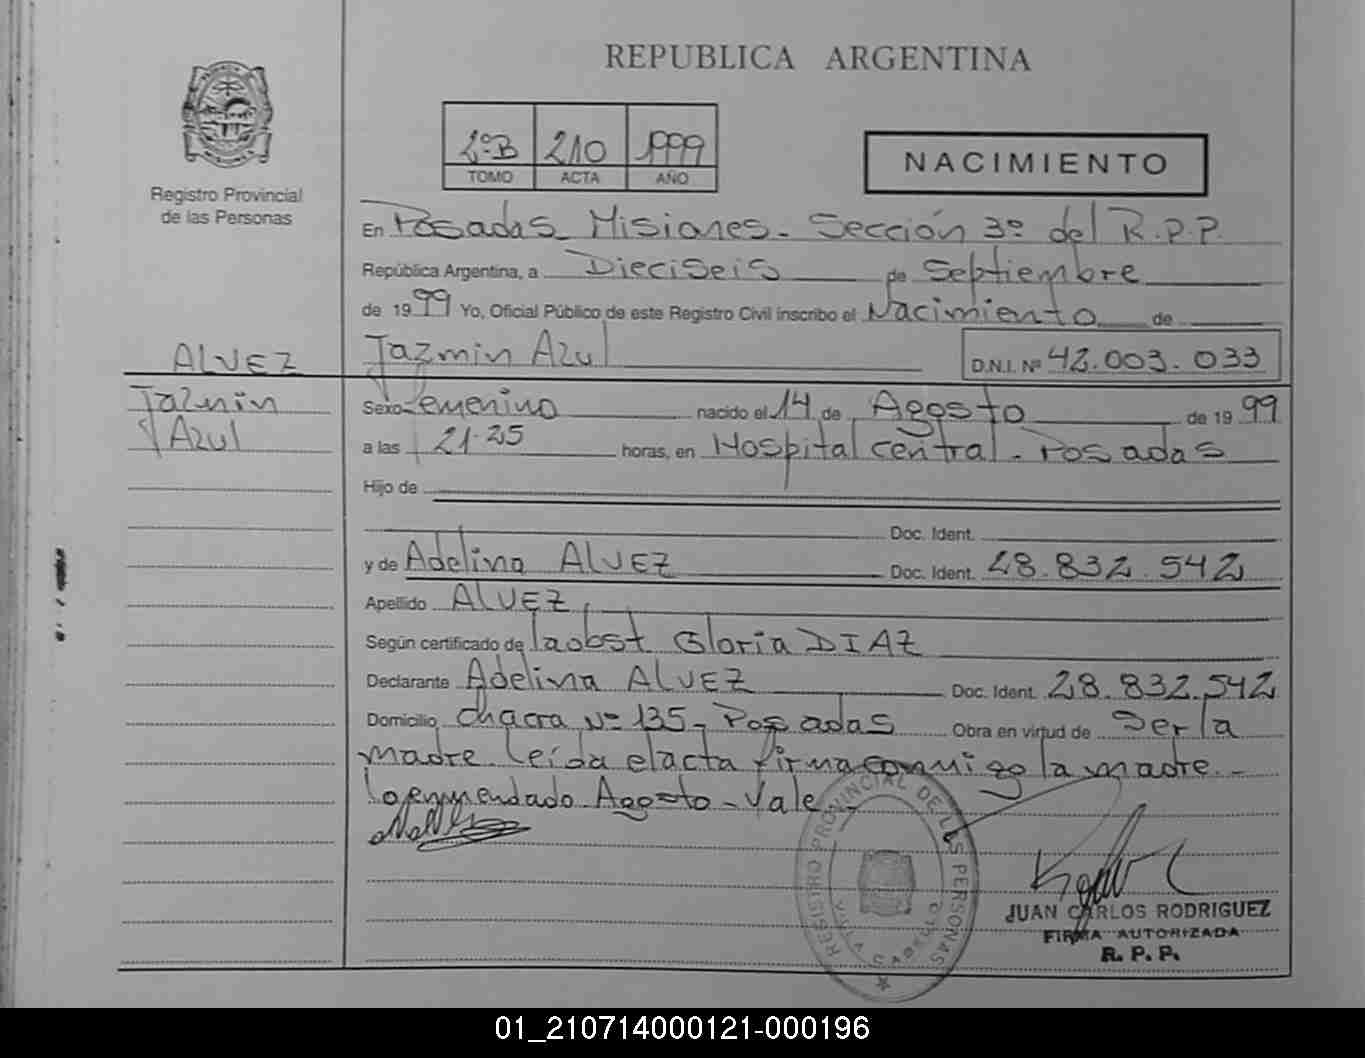 REPUBLICA ARGENTINA
2ºB 210 1999
TOMO ACTA AÑO
NACIMIENTO
Registro Provincial
de las Personas
En Posadas Misiones - Sección 3º del R.P.P.
República Argentina, a Dieciseis de Septiembre
de 1999 Yo, Oficial Público de este Registro Civil inscribo el Nacimiento de
ALVEZ
Jazmin
Azul
Jazmin Azul D.N.I. Nº 42.003.033
Sexo Femenino nacido el 14 de Agosto de 1999
a las 21.25 horas, en Hospital central - Posadas
Hijo de
Doc. Ident.
y de Adelina ALVEZ Doc. Ident. 28.832.542
Apellido ALVEZ
Según certificado de la obst Gloria DIAZ
Declarante Adelina ALVEZ Doc. Ident. 28.832.542
Domicilio chacra Nº 135 - Posadas Obra en virtud de Ser la
madre. Leída el acta firma conmigo la madre -
lo enmendado Agosto - Vale -
REGISTRO PROVINCIAL DE LAS PERSONAS
JUAN CARLOS RODRIGUEZ
FIRMA AUTORIZADA
R. P. P.
01_210714000121-000196